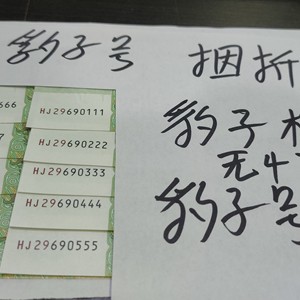 豹子号
捆折
豹子
无4
豹子号
666
HJ29690111
7
HJ29690222
HJ29690333
HJ29690444
HJ29690555